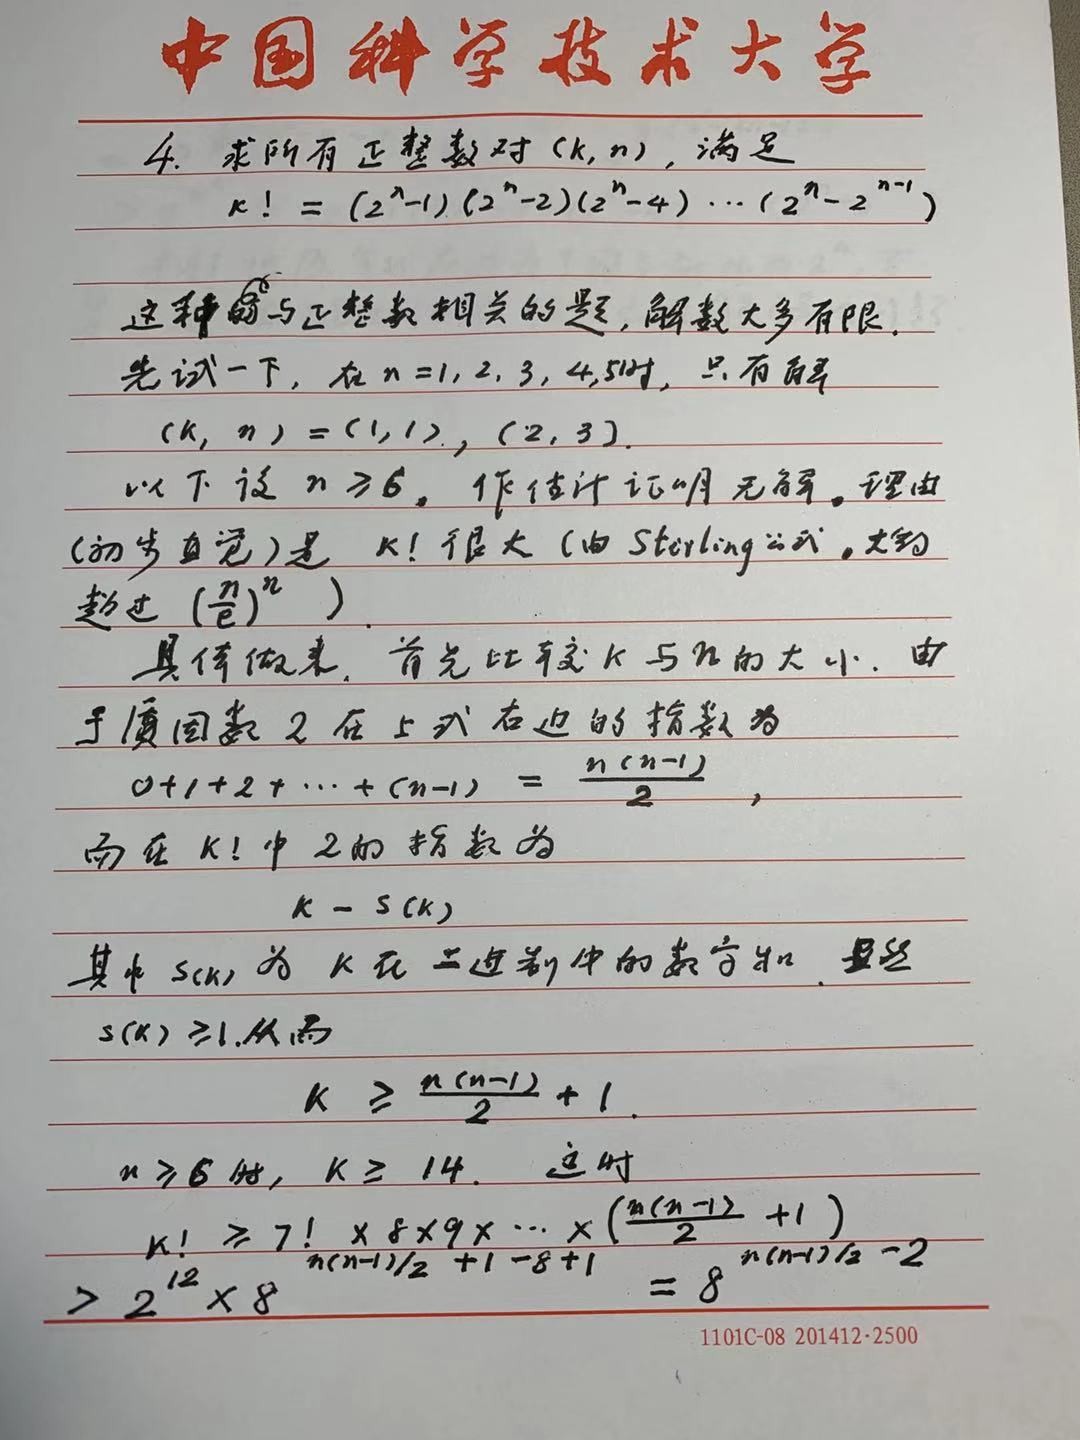 中国科学技术大学
4. 求所有正整数对(k,n), 满足
k! = (2^n-1)(2^n-2)(2^n-4)⋯(2^n-2^{n-1})
这种与正整数相关的题, 解数大多有限.
先试一下, 在n=1,2,3,4,5时, 只有解
(k, n)=(1,1), (2,3).
以下设n≥6. 作估计证明无解. 理由
(初步直觉)是 k!很大(由Sterling公式. 大约
超过 (n/e)^n ).
具体做来, 首先比较k与n的大小. 由
于质因数2在上式右边的指数为
0+1+2+⋯+(n-1) = n(n-1)/2 ,
而在k!中2的指数为
k - S(k)
其中S(k)为k在二进制中的数字和. 显然
S(k)≥1.从而
k ≥ n(n-1)/2 + 1.
n≥6时, k≥14. 这时
k! ≥ 7! ×8×9×⋯×(n(n-1)/2 +1)
> 2^{12}×8^{n(n-1)/2 +1-8+1} = 8^{n(n-1)/2 -2}
1101C-08 201412·2500